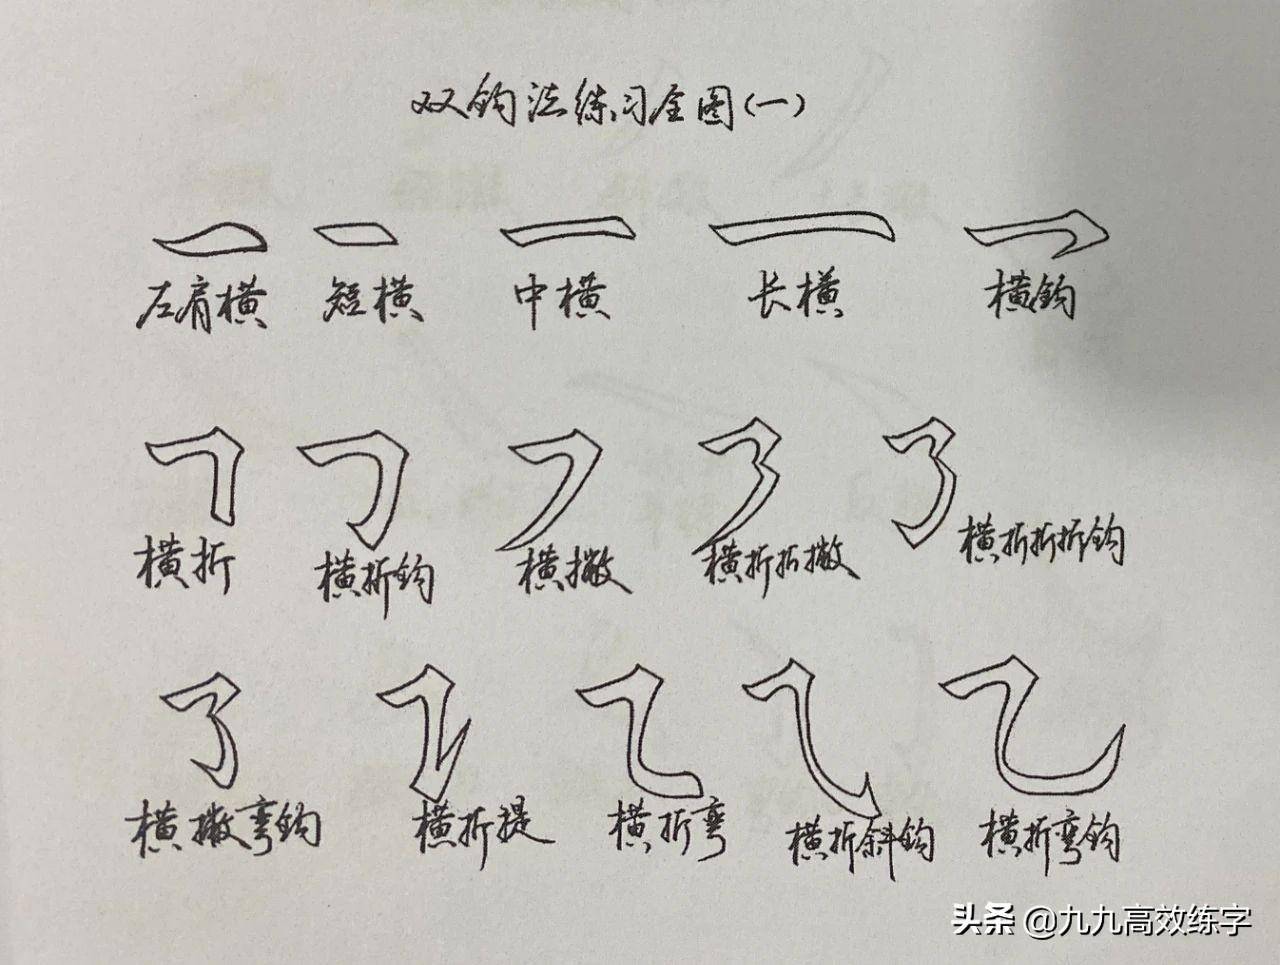 双钩法练习全图(一)
左肩横 短横 中横 长横 横钩
横折 横折钩 横撇 横折折撇 横折折折钩
横撇弯钩 横折提 横折弯 横折斜钩 横折弯钩
头条 @九九高效练字